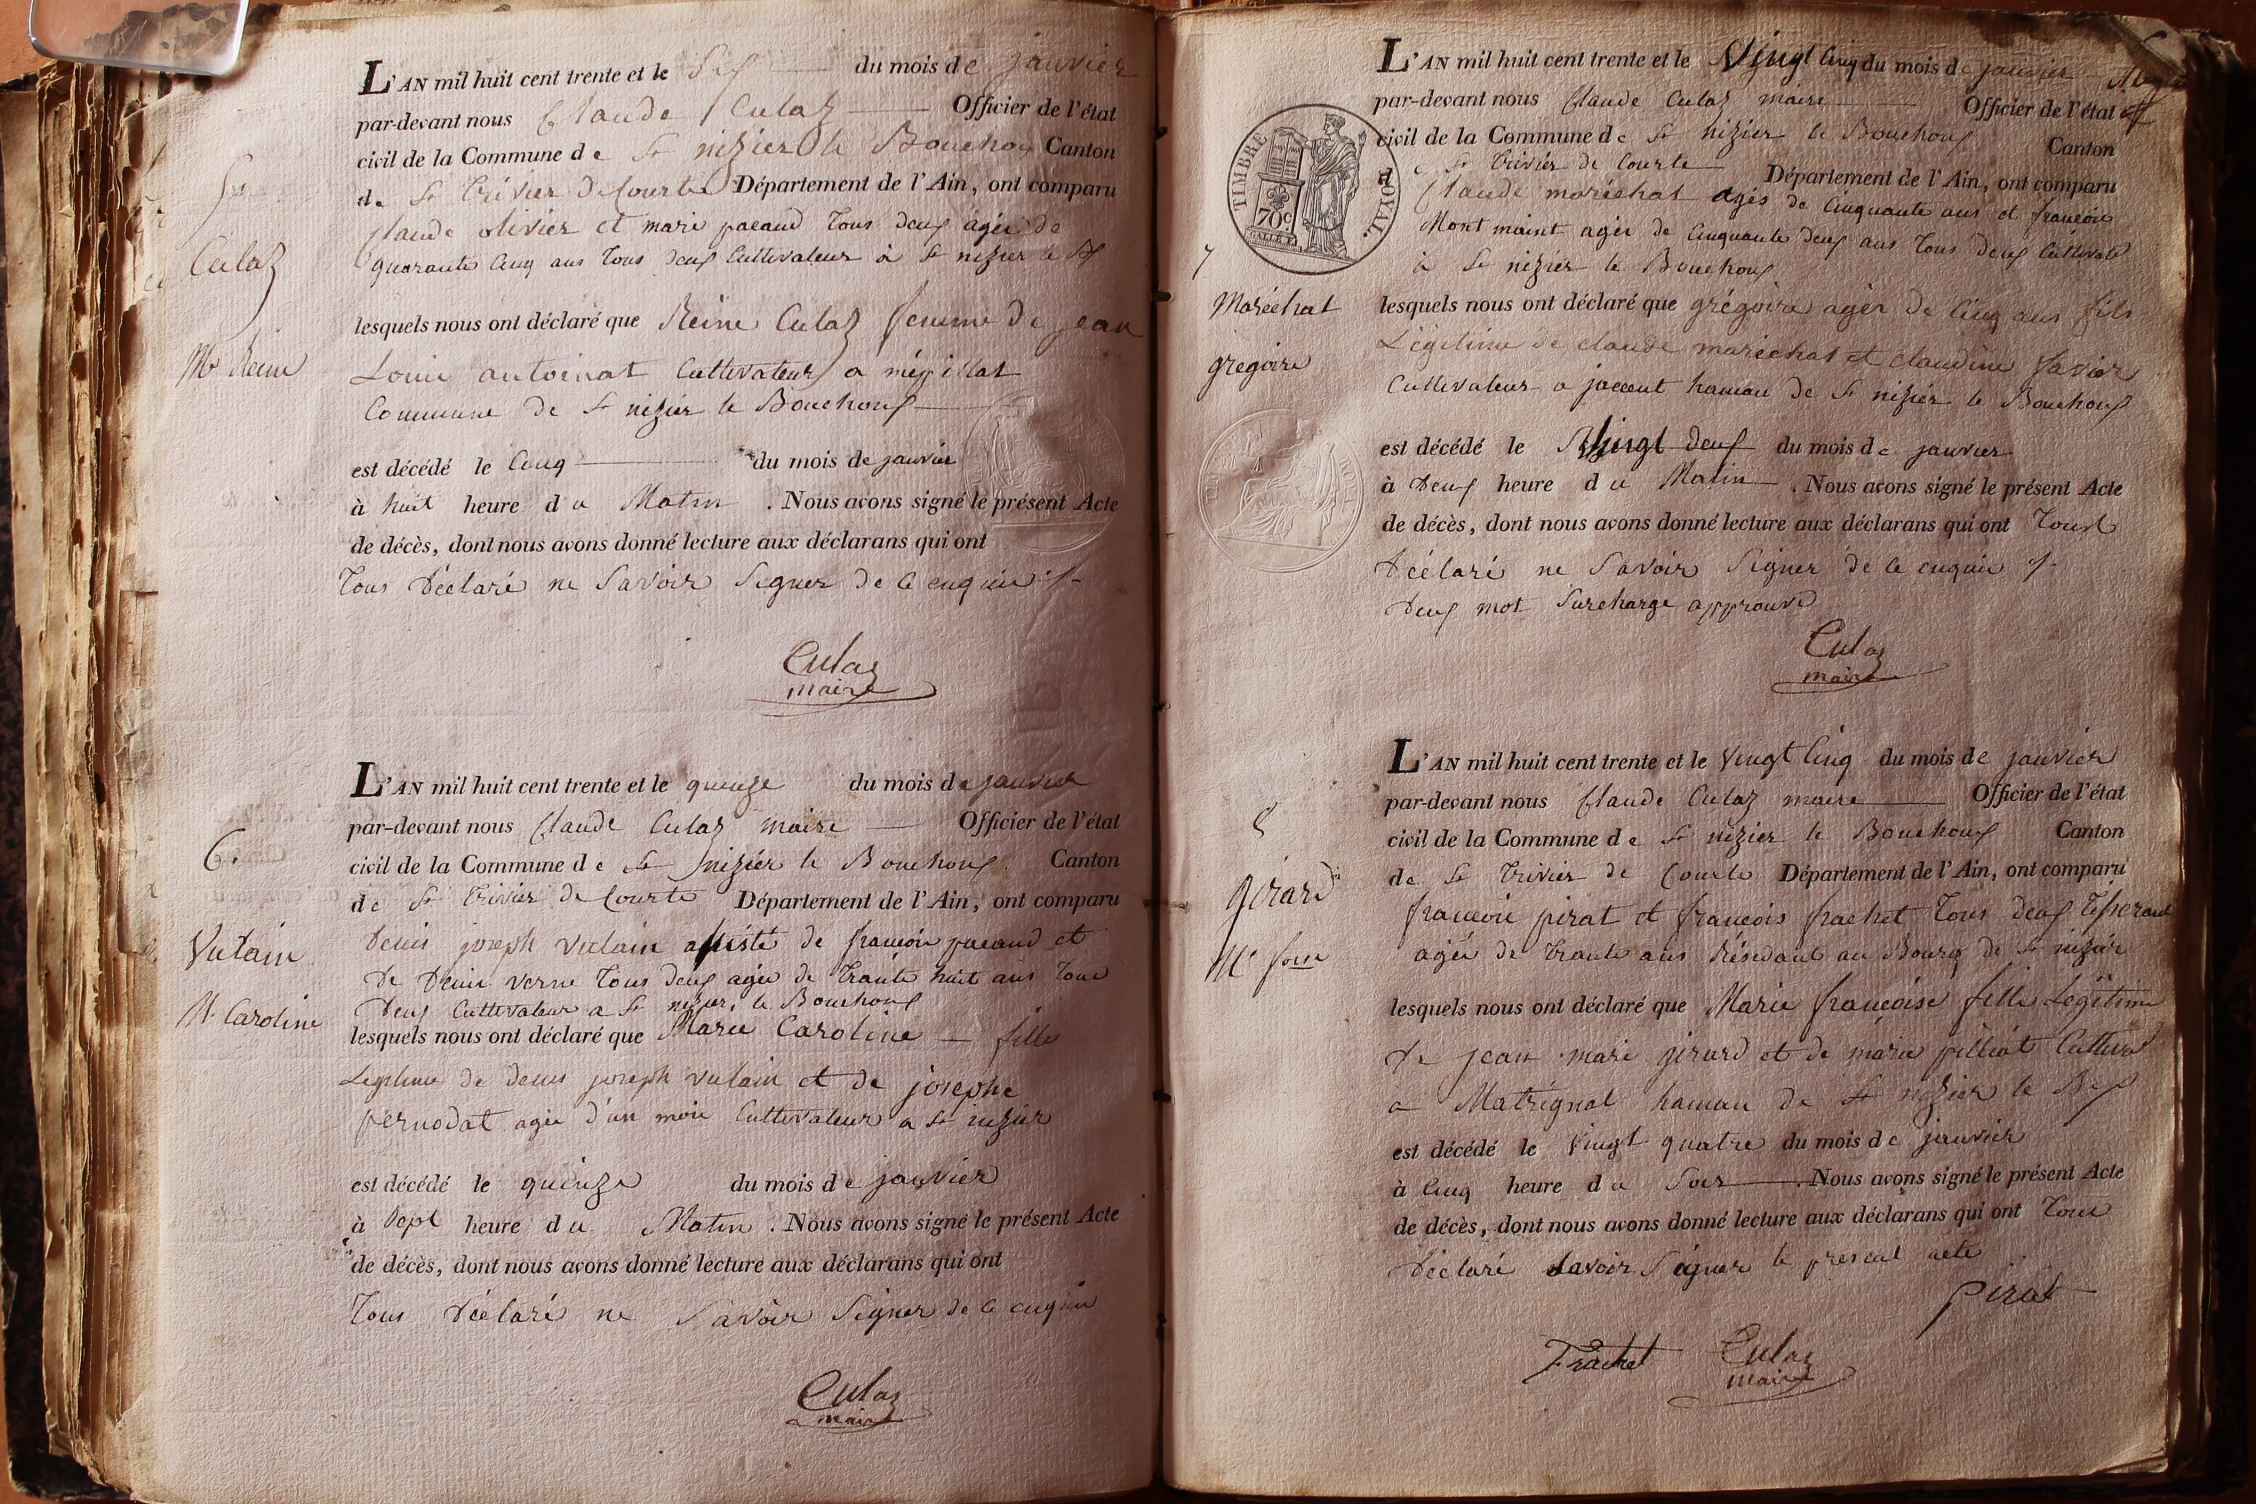 L'AN mil huit cent trente et le Six du mois de janvier
par-devant nous Claude Culaz Officier de l'état
civil de la Commune de St nizier le Bouchoux Canton
de St Trivier de Courte Département de l'Ain, ont comparu
Claude olivier et marie pacaud Tous deux agés de
quarante Cinq ans Tous deux Cultivateur à St nizier le Bx
lesquels nous ont déclaré que Reine Culaz femme de jean
Louis antoinat Cultivateur a mépillat
Commune de St nizier le Bouchoux
est décédé le Cinq du mois de janvier
à huit heure du Matin . Nous avons signé le présent Acte
de décès, dont nous avons donné lecture aux déclarans qui ont
Tous Déclaré ne Savoir Signer de ce enquis
Culaz
maire
Culaz
L'AN mil huit cent trente et le quinze du mois de janvier
par-devant nous Claude Culaz maire Officier de l'état
civil de la Commune de St nizier le Bouchoux Canton
de St Trivier de Courte Département de l'Ain, ont comparu
Denis joseph vulain assisté de francois pacaud et
De Denis verne Tous deux agés de Trante huit ans Tous
Deux Cultivateur a St nizier le Bouchoux
lesquels nous ont déclaré que Marie Caroline fille
Legitime de denis joseph vulain et de josephe
pernodat agée d'un mois Cultivateur a St nizier
est décédé le quinze du mois de janvier
à Sept heure du Matin . Nous avons signé le présent Acte
de décès, dont nous avons donné lecture aux déclarans qui ont
Tous Déclaré ne Savoir Signer de ce enquis
Culaz
maire
6.
Vulain
M. Caroline
L'AN mil huit cent trente et le Vingt Cinq du mois de janvier
par-devant nous Claude Culaz maire Officier de l'état
civil de la Commune de St nizier le Bouchoux Canton
de St Trivier de Courte Département de l'Ain, ont comparu
Claude maréchat agés de Cinquante ans et francois
Mont maint agés de Cinquante deux ans Tous deux Cultivate
à St nizier le Bouchoux
lesquels nous ont déclaré que grégoire agér de Cinq ans fils
Légitime de claude maréchat et claudine Vavier
Cultivateur a jaccent hameau de St nizier le Bouchoux
est décédé le Vingt deux du mois de janvier
à Deux heure du Matin . Nous avons signé le présent Acte
de décès, dont nous avons donné lecture aux déclarans qui ont Tous
Déclaré ne Savoir Signer de ce enquis
Deux mot Surcharge approuvé
Culaz
maire
TIMBRE ROYAL.
70c
7
Maréchat
gregoire
L'AN mil huit cent trente et le Vingt Cinq du mois de janvier
par-devant nous Claude Culaz maire Officier de l'état
civil de la Commune de St nizier le Bouchoux Canton
de St Trivier de Courte Département de l'Ain, ont comparu
francois pirat et francois frachet Tous deux Tisserant
agés de Trante ans Résidant au Bourg de St nizier
lesquels nous ont déclaré que Marie francoise fille Légitime
De jean marie girard et de marie pilliat Cultivat
a Matrignat hameau de St nizier le Bx
est décédé le Vingt quatre du mois de janvier
à Cinq heure du Soir . Nous avons signé le présent Acte
de décès, dont nous avons donné lecture aux déclarans qui ont Tous
Déclaré Savoir Signer le present acte
pirat
Frachet Culaz
maire
8
girard